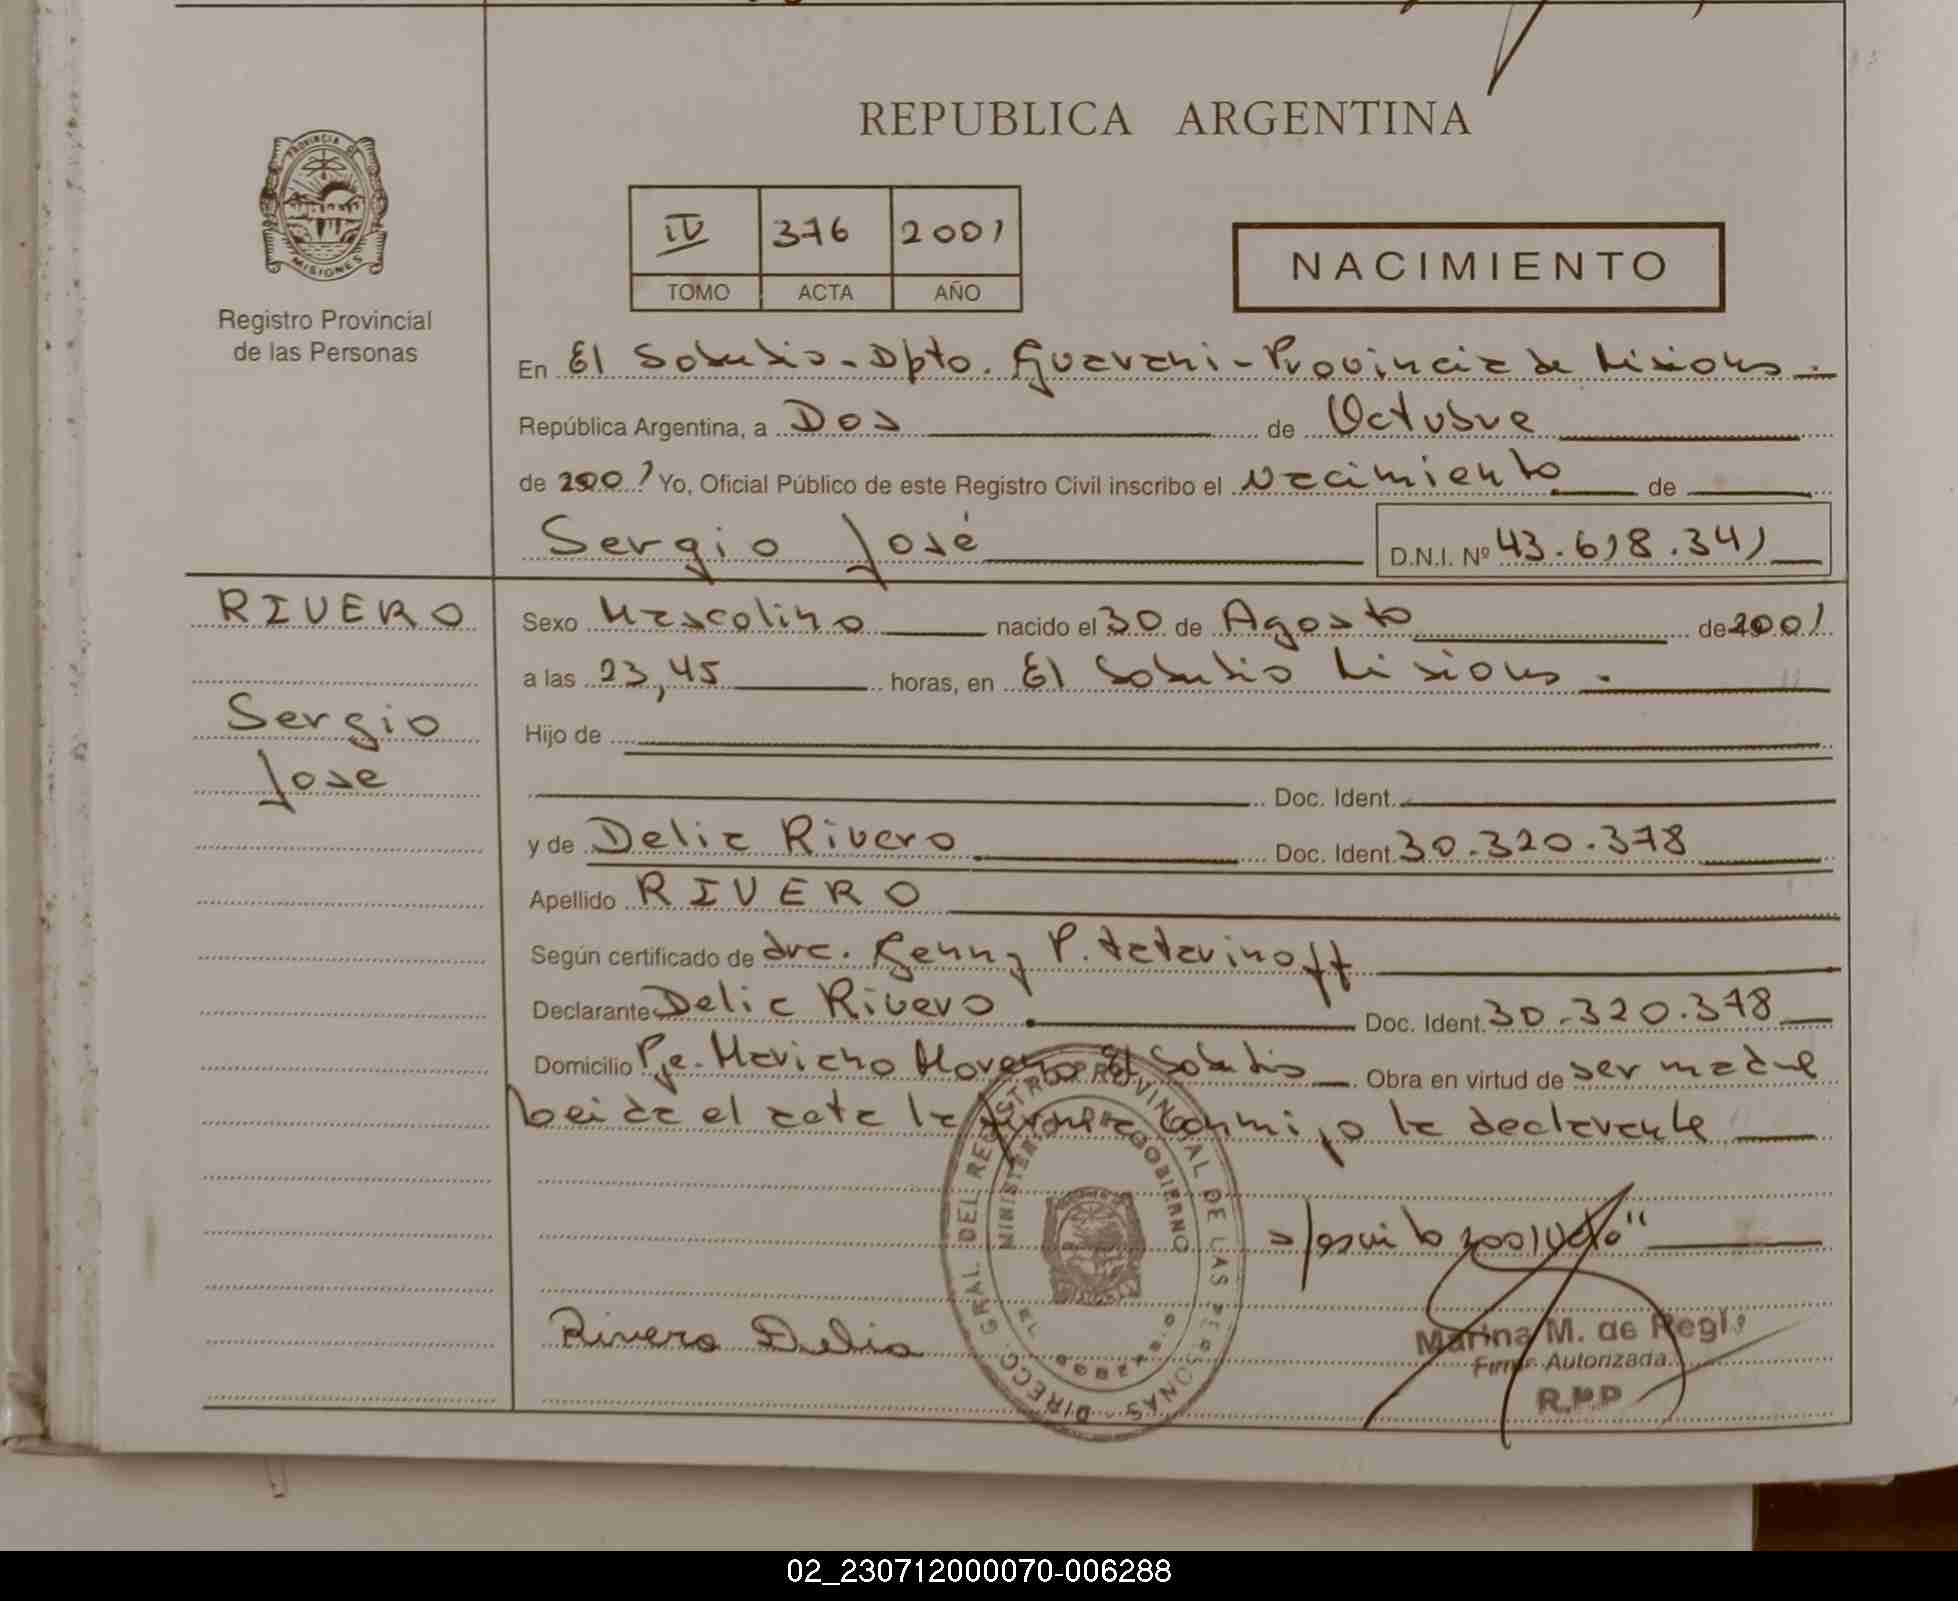 REPUBLICA ARGENTINA
PROVINCIA DE
MISIONES
Registro Provincial
de las Personas
IV 376 2001
TOMO ACTA AÑO
NACIMIENTO
En El Soberbio - Dpto. Guarani - Provincia de Misiones.
República Argentina, a Dos de Octubre
de 2001 Yo, Oficial Público de este Registro Civil inscribo el nacimiento de
Sergio José D.N.I. Nº 43.618.341
RIVERO
Sergio
Jose
Sexo Masculino nacido el 30 de Agosto de 2001
a las 23,45 horas, en El Soberbio Misiones.
Hijo de
Doc. Ident.
y de Delia Rivero Doc. Ident. 30.320.378
Apellido RIVERO
Según certificado de dra. Genny P. Tatarinoff
Declarante Delia Rivero Doc. Ident. 30.320.378
Domicilio Pje. Mariano Moreno El Soberbio Obra en virtud de ser madre
leida el acta la firma conmigo la declarante
s/escrito 2001 Vale"
Rivero Delia
DIRECC. GRAL. DEL REGISTRO PROVINCIAL DE LAS PERSONAS
MINISTERIO DE GOBIERNO
EL SOBERBIO
Marina M. de Regl
Firma Autorizada
R.P.P
02_230712000070-006288